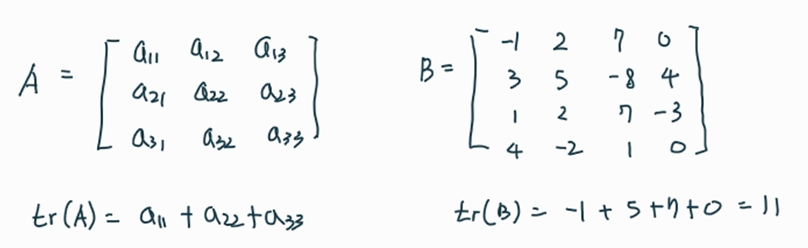 A = [ a11 a12 a13
a21 a22 a23
a31 a32 a33 ]
B = [ -1 2 7 0
3 5 -8 4
1 2 7 -3
4 -2 1 0 ]
tr(A) = a11 + a22 + a33
tr(B) = -1 + 5 + 7 + 0 = 11